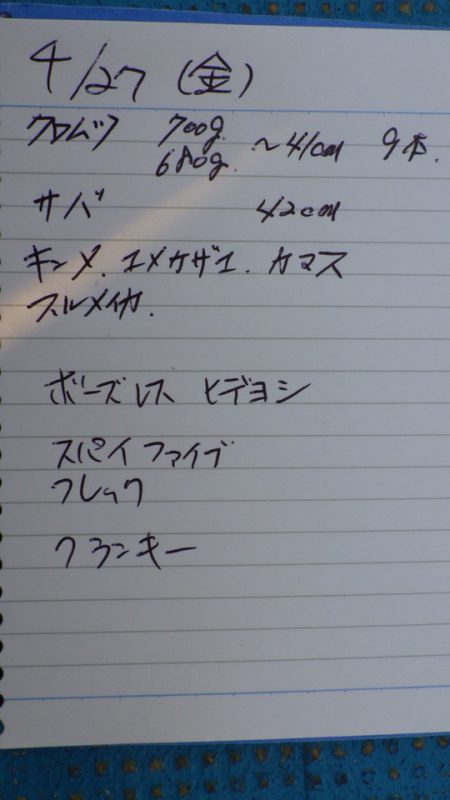 4/27 (金)
クロムツ 700g 680g. ~41cm 9本.
サバ 42cm
キンメ. ユメカザゴ. カマス
スルメイカ.
ボーズレス ヒデヨシ
スパイファイブ
フレック
クランキー